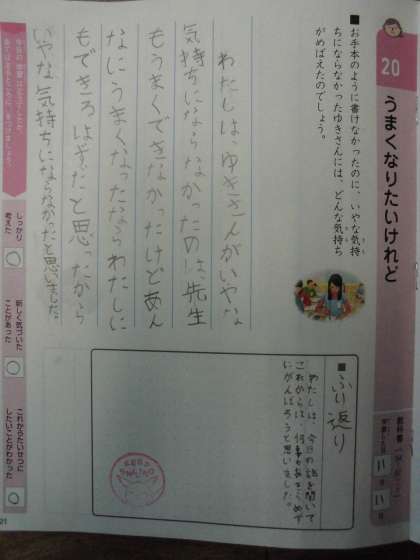 20
うまくなりたいけれど
■お手本のように書けなかったのに、いやな気持
ちにならなかったゆきさんには、どんな気持ち
がめばえたのでしょう。
わたしは、ゆきさんがいやな
気持ちにならなかったのは、先生
もうまくできなかったけどあん
なにうまくなったならわたしに
もできるはずだと思ったから
いやな気持ちにならなかったと思いました。
■ふり返り
わたしは、今日の話を聞いて
これからは、何事もあきらめず
にがんばろうと思いました。
KEEP
SMILING
教科書
学習した日
11
月
11
日
しっかり
考えた
○
新しく気づいた
ことがあった
○
これからたいせつに
したいことがわかった
○
21